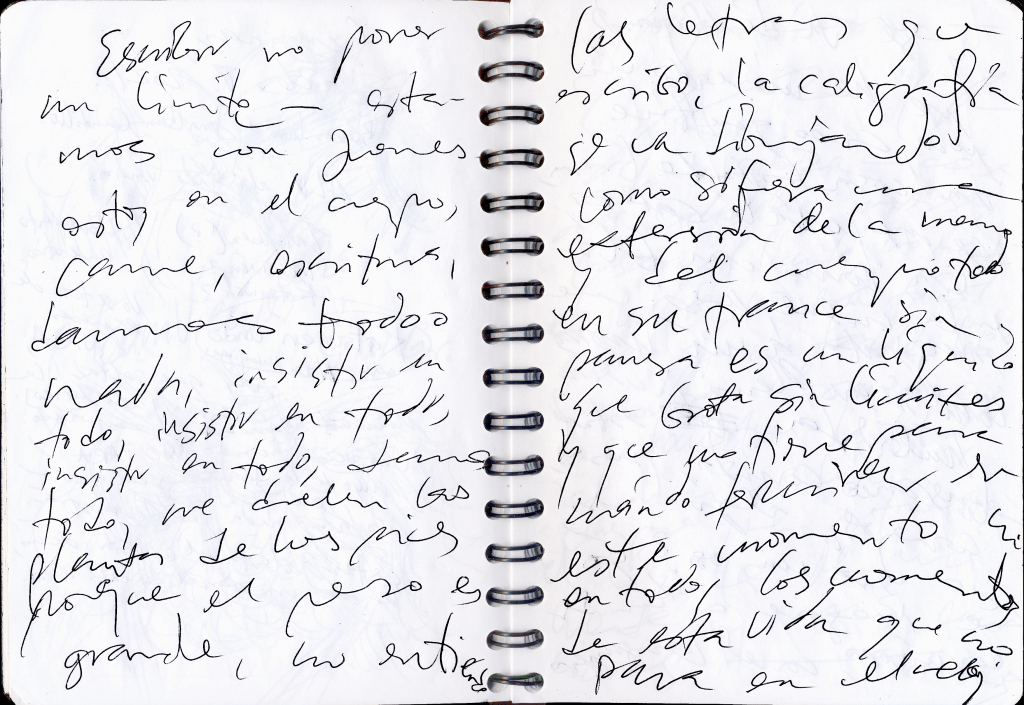 Escribir no poner
un límite — esta-
mos con Jones
estoy en el cuerpo,
carne, escritura,
damos todo o
nada, insistir en
todo, insistir en todo,
insistir en todo, damos
todo, me duelen las
plantas de los pies
porque el peso es
grande, no entiendo
las letras que
escribo, la caligrafía
se va dibujando
como si fuera una
extensión de la mano
y del cuerpo todo
en su trance sin
pausa es un líquido
que brota sin límites
y que no tiene para
cuándo en
este momento ni
en todos los momentos
de esta vida que no
para en el reloj